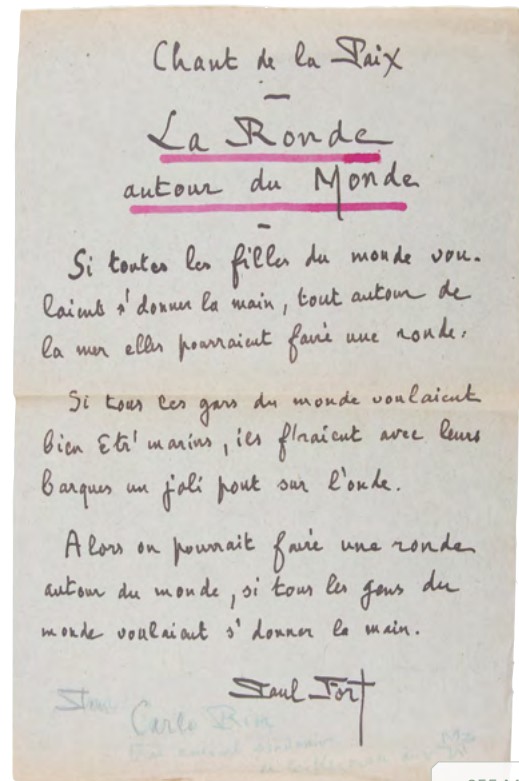 Chant de la Paix
La Ronde
autour du Monde
Si toutes les filles du monde vou-
laient s'donner la main, tout autour de
la mer elles pourraient faire une ronde.
Si tous les gars du monde voulaient
bien êtr' marins, ils f'raient avec leurs
barques un joli pont sur l'onde.
Alors on pourrait faire une ronde
autour du monde, si tous les gens du
monde voulaient s'donner la main.
Paul Fort
Carlo Rim